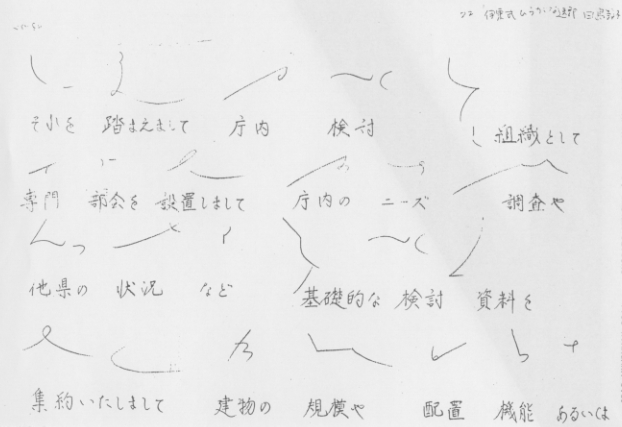 それを 踏まえまして 庁内 検討 組織として
専門 部会を 設置しまして 庁内の ニーズ 調査や
他県の 状況 など 基礎的な 検討 資料を
集約いたしまして 建物の 規模や 配置 機能 あるいは